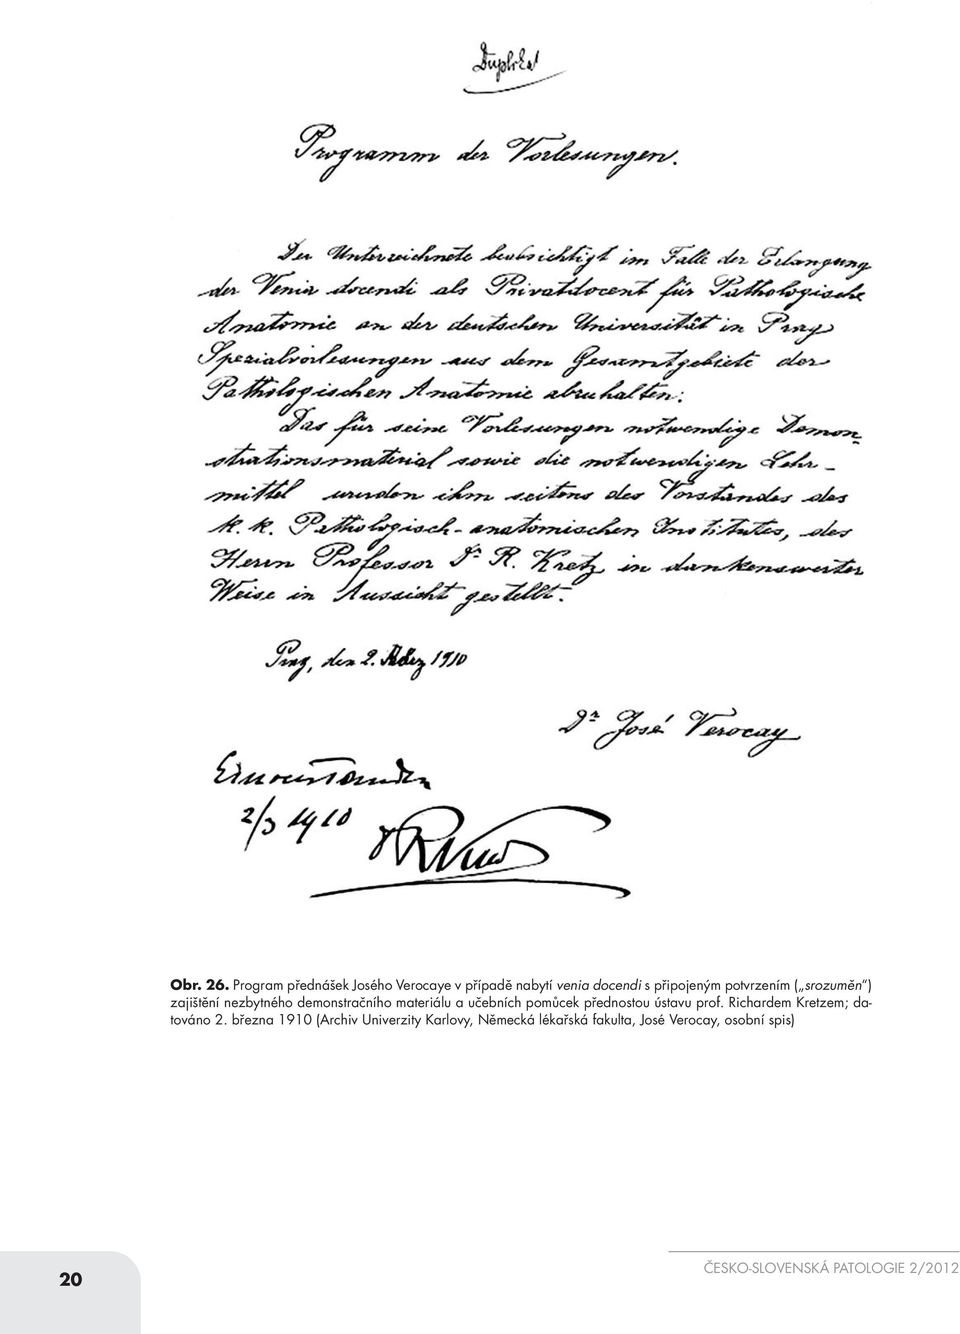 Duplikat
Programm der Vorlesungen.
Der Unterzeichnete beabsichtigt im Falle der Erlangung
der Venia docendi als Privatdocent für Pathologische
Anatomie an der deutschen Universität in Prag
Spezialvorlesungen aus dem Gesamtgebiete der
Pathologischen Anatomie abzuhalten:
Das für seine Vorlesungen notwendige Demon-
strationsmaterial sowie die notwendigen Lehr-
mittel wurden ihm seitens des Vorstandes des
k. k. Pathologisch-anatomischen Institutes, des
Herrn Professor Dr R. Kretz in dankenswerter
Weise in Aussicht gestellt.
Prag, den 2. März 1910
Dr José Verocay
Einverstanden
2/3 1910
RKretz
Obr. 26. Program přednášek Josého Verocaye v případě nabytí venia docendi s připojeným potvrzením ( „srozuměn“ )
zajištění nezbytného demonstračního materiálu a učebních pomůcek přednostou ústavu prof. Richardem Kretzem; da-
továno 2. března 1910 (Archiv Univerzity Karlovy, Německá lékařská fakulta, José Verocay, osobní spis)
20
ČESKO-SLOVENSKÁ PATOLOGIE 2/2012